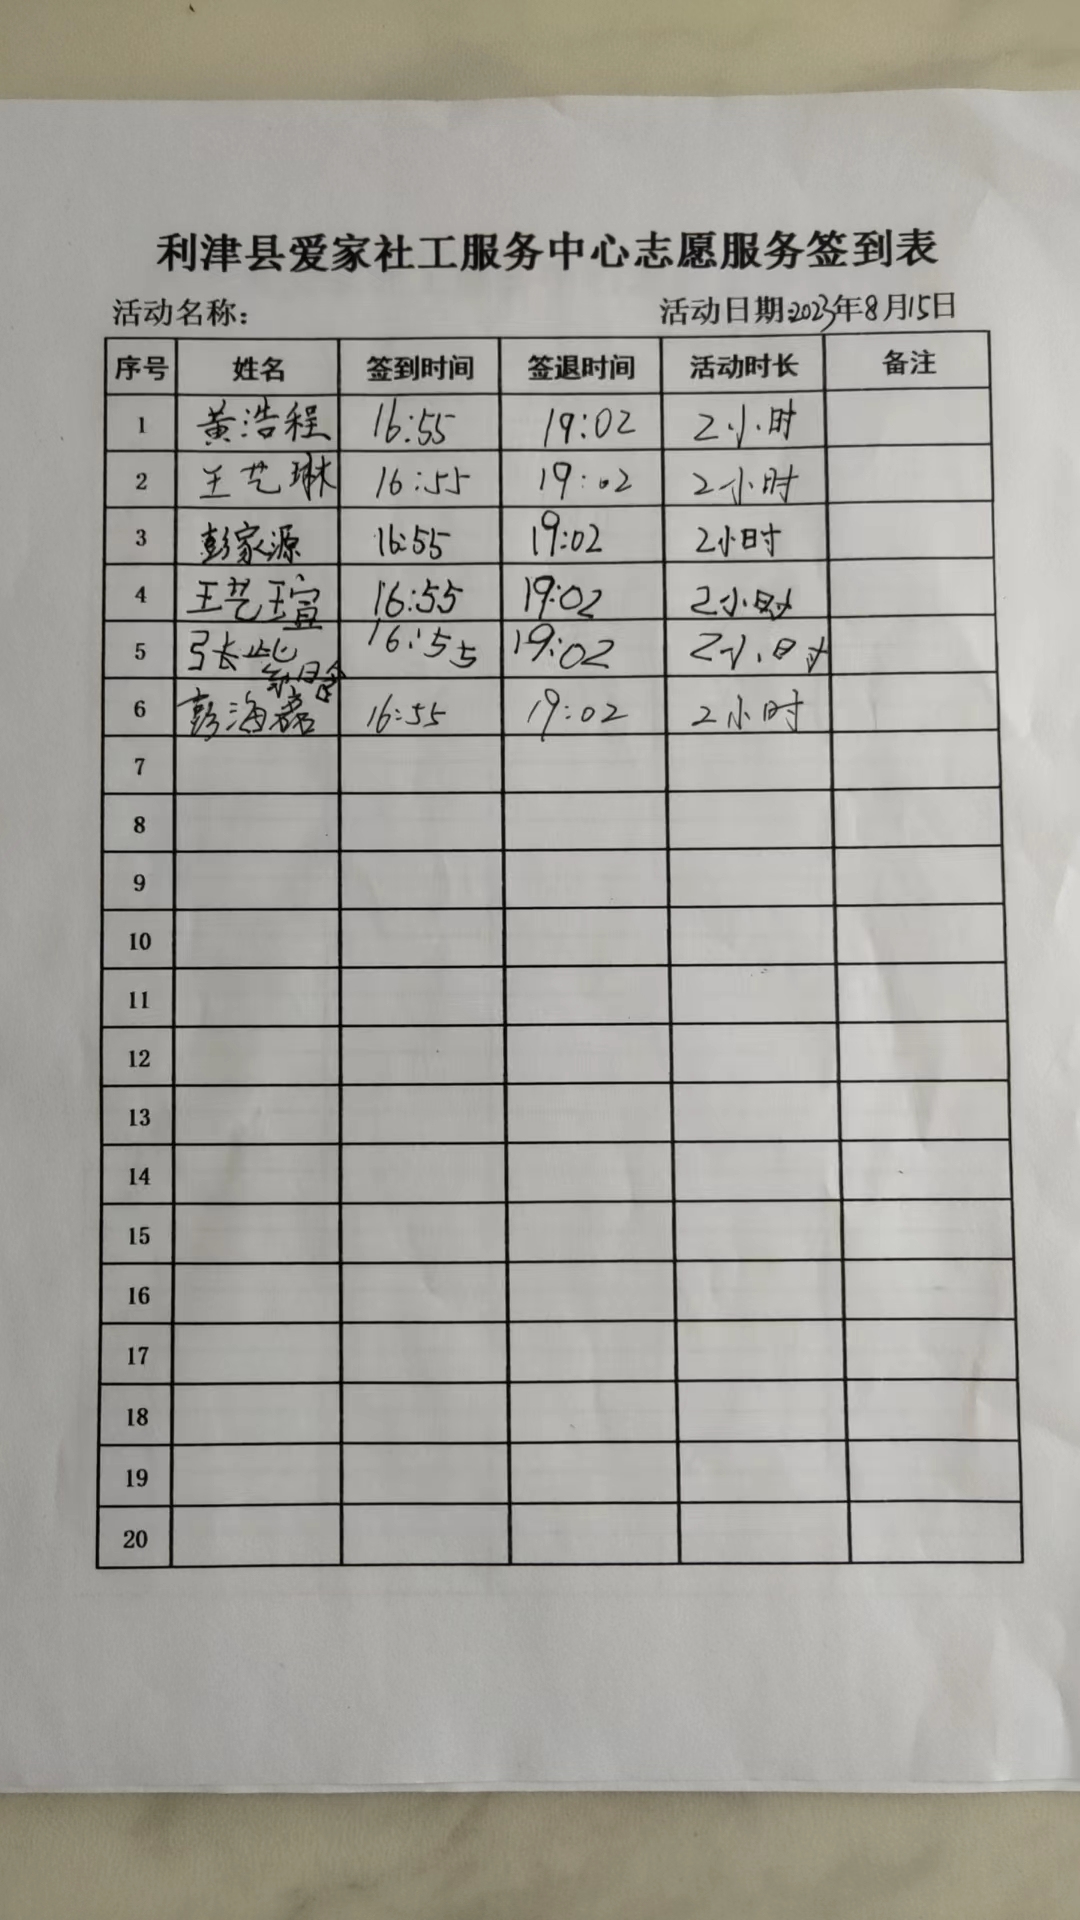 利津县爱家社工服务中心志愿服务签到表
活动名称： 活动日期:2023年8月15日
序号 姓名 签到时间 签退时间 活动时长 备注
1 黄浩程 16:55 19:02 2小时
2 王艺琳 16:55 19:02 2小时
3 彭家源 16:55 19:02 2小时
4 王艺瑄 16:55 19:02 2小时
5 张紫晗 16:55 19:02 2小时
6 彭海 16:55 19:02 2小时
7
8
9
10
11
12
13
14
15
16
17
18
19
20